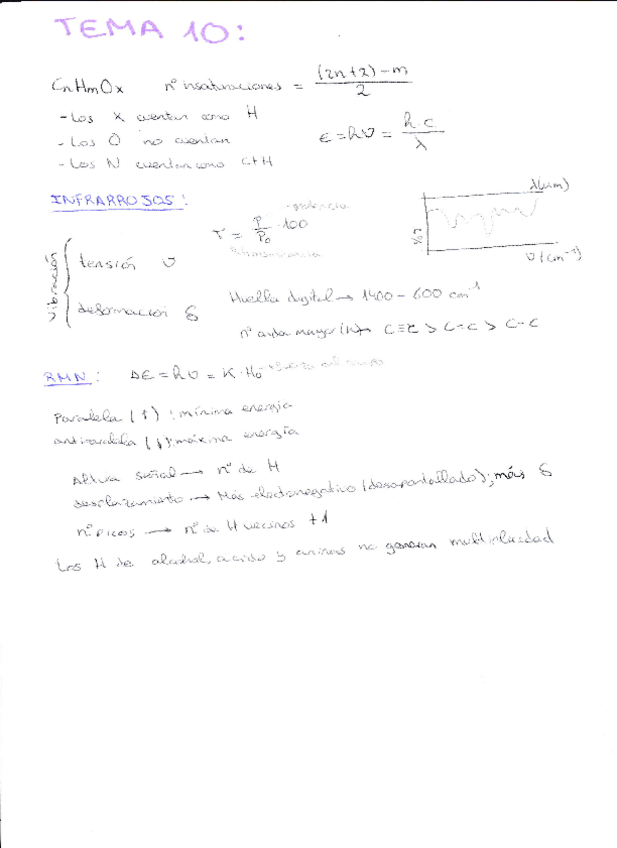 TEMA 10:
CnHmOx nº insaturaciones = (2n+2)-m / 2
- Los X cuentan como H
- Los O no cuentan
- Los N cuentan como C+H
E = hν = h·c / λ
INFRARROJOS:
vibración
tensión ν
deformación δ
T = P / P₀ · 100
potencia
λ(μm)
%T
ν(cm⁻¹)
Huella digital → 1400 - 600 cm⁻¹
nº onda mayor C≡C > C=C > C-C
RMN: ΔE = hν = K·H₀
Paralela (↑): mínima energía
antiparalela (↓): máxima energía
Altura señal → nº de H
desplazamiento → Más electronegativo (desapantallado); más δ
nº picos → nº de H vecinos +1
Los H de alcohol, ácido y aminas no generan multiplicidad